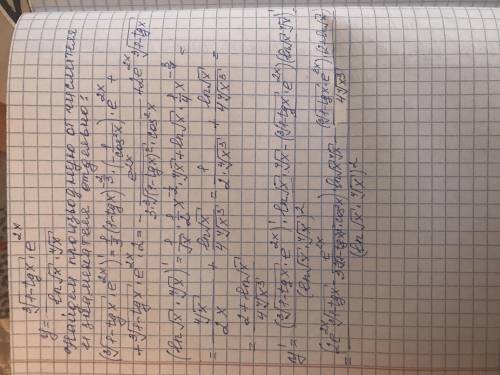 y = \frac{\sqrt[3]{7-tgx} · e^{2x}}{ln√x · \sqrt[4]{x}}
Найдем производную от числителя
и знаменателя отдельно:
(\sqrt[3]{7-tgx} · e^{2x})' = \frac{1}{3}(7-tgx)^{-\frac{2}{3}} · (-\frac{1}{cos²x}) · e^{2x} +
+ \sqrt[3]{7-tgx} · e^{2x} · 2 = -\frac{e^{2x}}{3·\sqrt[3]{(7-tgx)²}·cos²x} + 2e^{2x}\sqrt[3]{7-tgx}
(ln√x · \sqrt[4]{x})' = \frac{1}{√x} · \frac{1}{2}x^{-\frac{1}{2}} · \sqrt[4]{x} + ln√x · \frac{1}{4}x^{-\frac{3}{4}} =
= \frac{\sqrt[4]{x}}{2x} + \frac{ln√x}{4\sqrt[4]{x³}} = \frac{1}{2·\sqrt[4]{x³}} + \frac{ln√x}{4\sqrt[4]{x³}} =
= \frac{2+ln√x}{4\sqrt[4]{x³}}
y' = \frac{(\sqrt[3]{7-tgx} · e^{2x})' · ln√x · \sqrt[4]{x} - (\sqrt[3]{7-tgx} · e^{2x})(ln√x · \sqrt[4]{x})'}{(ln√x · \sqrt[4]{x})²}
= \frac{(2e^{2x}\sqrt[3]{7-tgx} - \frac{e^{2x}}{3\sqrt[3]{(7-tgx)²}·cos²x}) ln√x \sqrt[4]{x} - \frac{(\sqrt[3]{7-tgx} · e^{2x})(2+ln√x)}{4\sqrt[4]{x³}}}{(ln√x · \sqrt[4]{x})²}